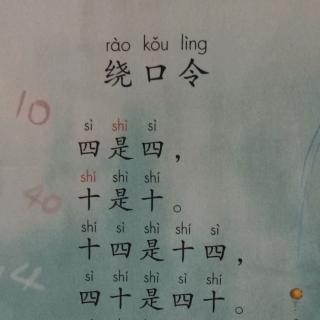 rào kǒu lìng
绕口令
10
sì shì sì
四是四，
shí shì shí
十是十。
40
shí sì shì shí sì
十四是十四，
.4
sì shí shì sì shí
四十是四十。